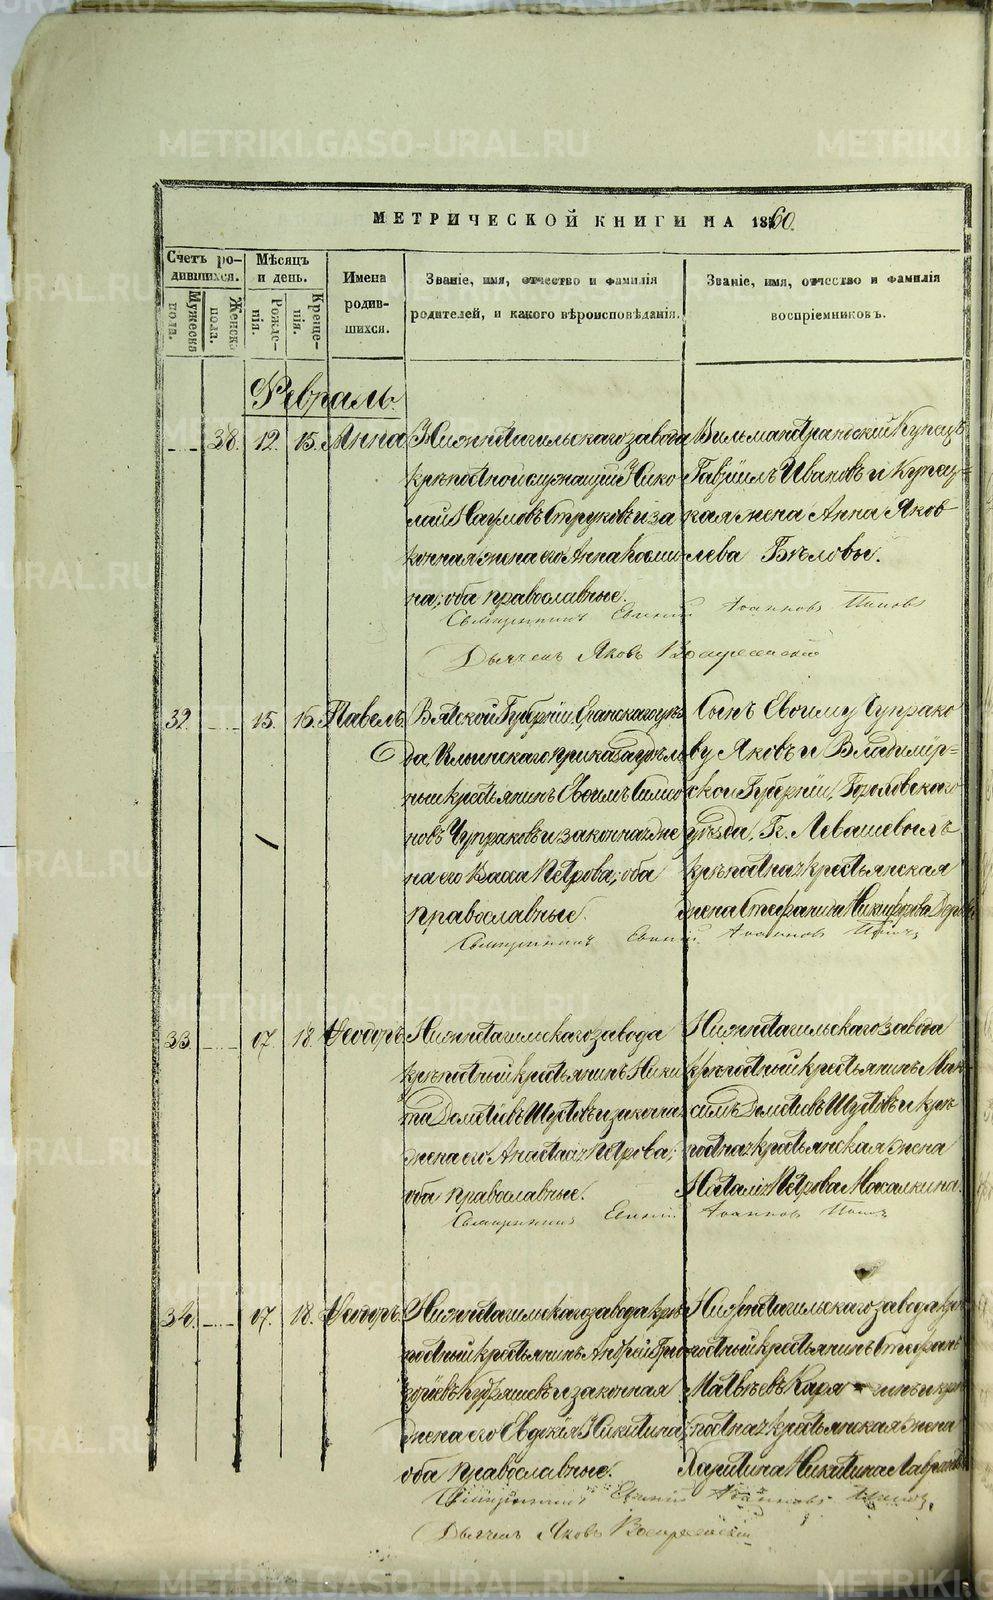 МЕТРИЧЕСКОЙ КНИГИ НА 1860.
Счетъ ро-
дившихся.
Мужеска
пола.
Женска
пола.
Мѣсяцъ
и день.
Рожде-
нія.
Креще-
нія.
Имена
родив-
шихся.
Званіе, имя, отчество и фамилія
родителей, и какого вѣроисповѣданія.
Званіе, имя, отчество и фамилія
воспріемниковъ.
Февраль.
38. 12. 15. Анна
Нижнетагильскаго завода
крѣпостной служащій Нико
лай Наумовъ Струковъ и за
конная жена его Анна Косми
на; оба православные.
Вильманстрандскій Купецъ
Гавріилъ Ивановъ и Купец=
кая жена Анна Яков
лева Бѣловы.
Священникъ Іоанновъ Поповъ
Дьячекъ Яковъ Воскресенскій
32. 15. 16. Павелъ
Вятской Губерніи, Яранскаго уѣз
да, Ильинскаго приказа удѣль
ный крестьянинъ Евѳимъ
новъ Чупраковъ и законная же
на его Васса Петрова; оба
православные.
Сынъ Евѳиму Чупрако
ву Яковъ и Владимір=
ской Губерніи, Гороховскаго
уѣзда, Г. Левашевымъ
крѣпостная крестьянская
жена Стефанида Никифорова
Священникъ Іоанновъ Поповъ
33. 07 18. Ѳеодоръ
Нижнетагильскаго завода
крѣпостный крестьянинъ Ники
та Дометіевъ Шустовъ и законна
жена его Анастасія Петрова;
оба православные.
Нижнетагильскаго завода
крѣпостный крестьянинъ Мак
симъ Дометіевъ Шустовъ и крѣ
постная крестьянская жена
Наталія Петрова Мосалкина.
Священникъ Іоанновъ Поповъ
34. 07. 18. Ѳеодоръ.
Нижнетагильскаго завода крѣ
постный крестьянинъ Андрей Гри
горіевъ и законная
жена его Евдокія Никитина
оба православные.
Нижнетагильскаго завода крѣ
постный крестьянинъ Стефанъ
Матвѣевъ и крѣ
постная крестьянская жена
Харитина Никитина
Священникъ Іоанновъ Поповъ.
Дьячекъ Яковъ Воскресенскій
METRIKI.GASO-URAL.RU